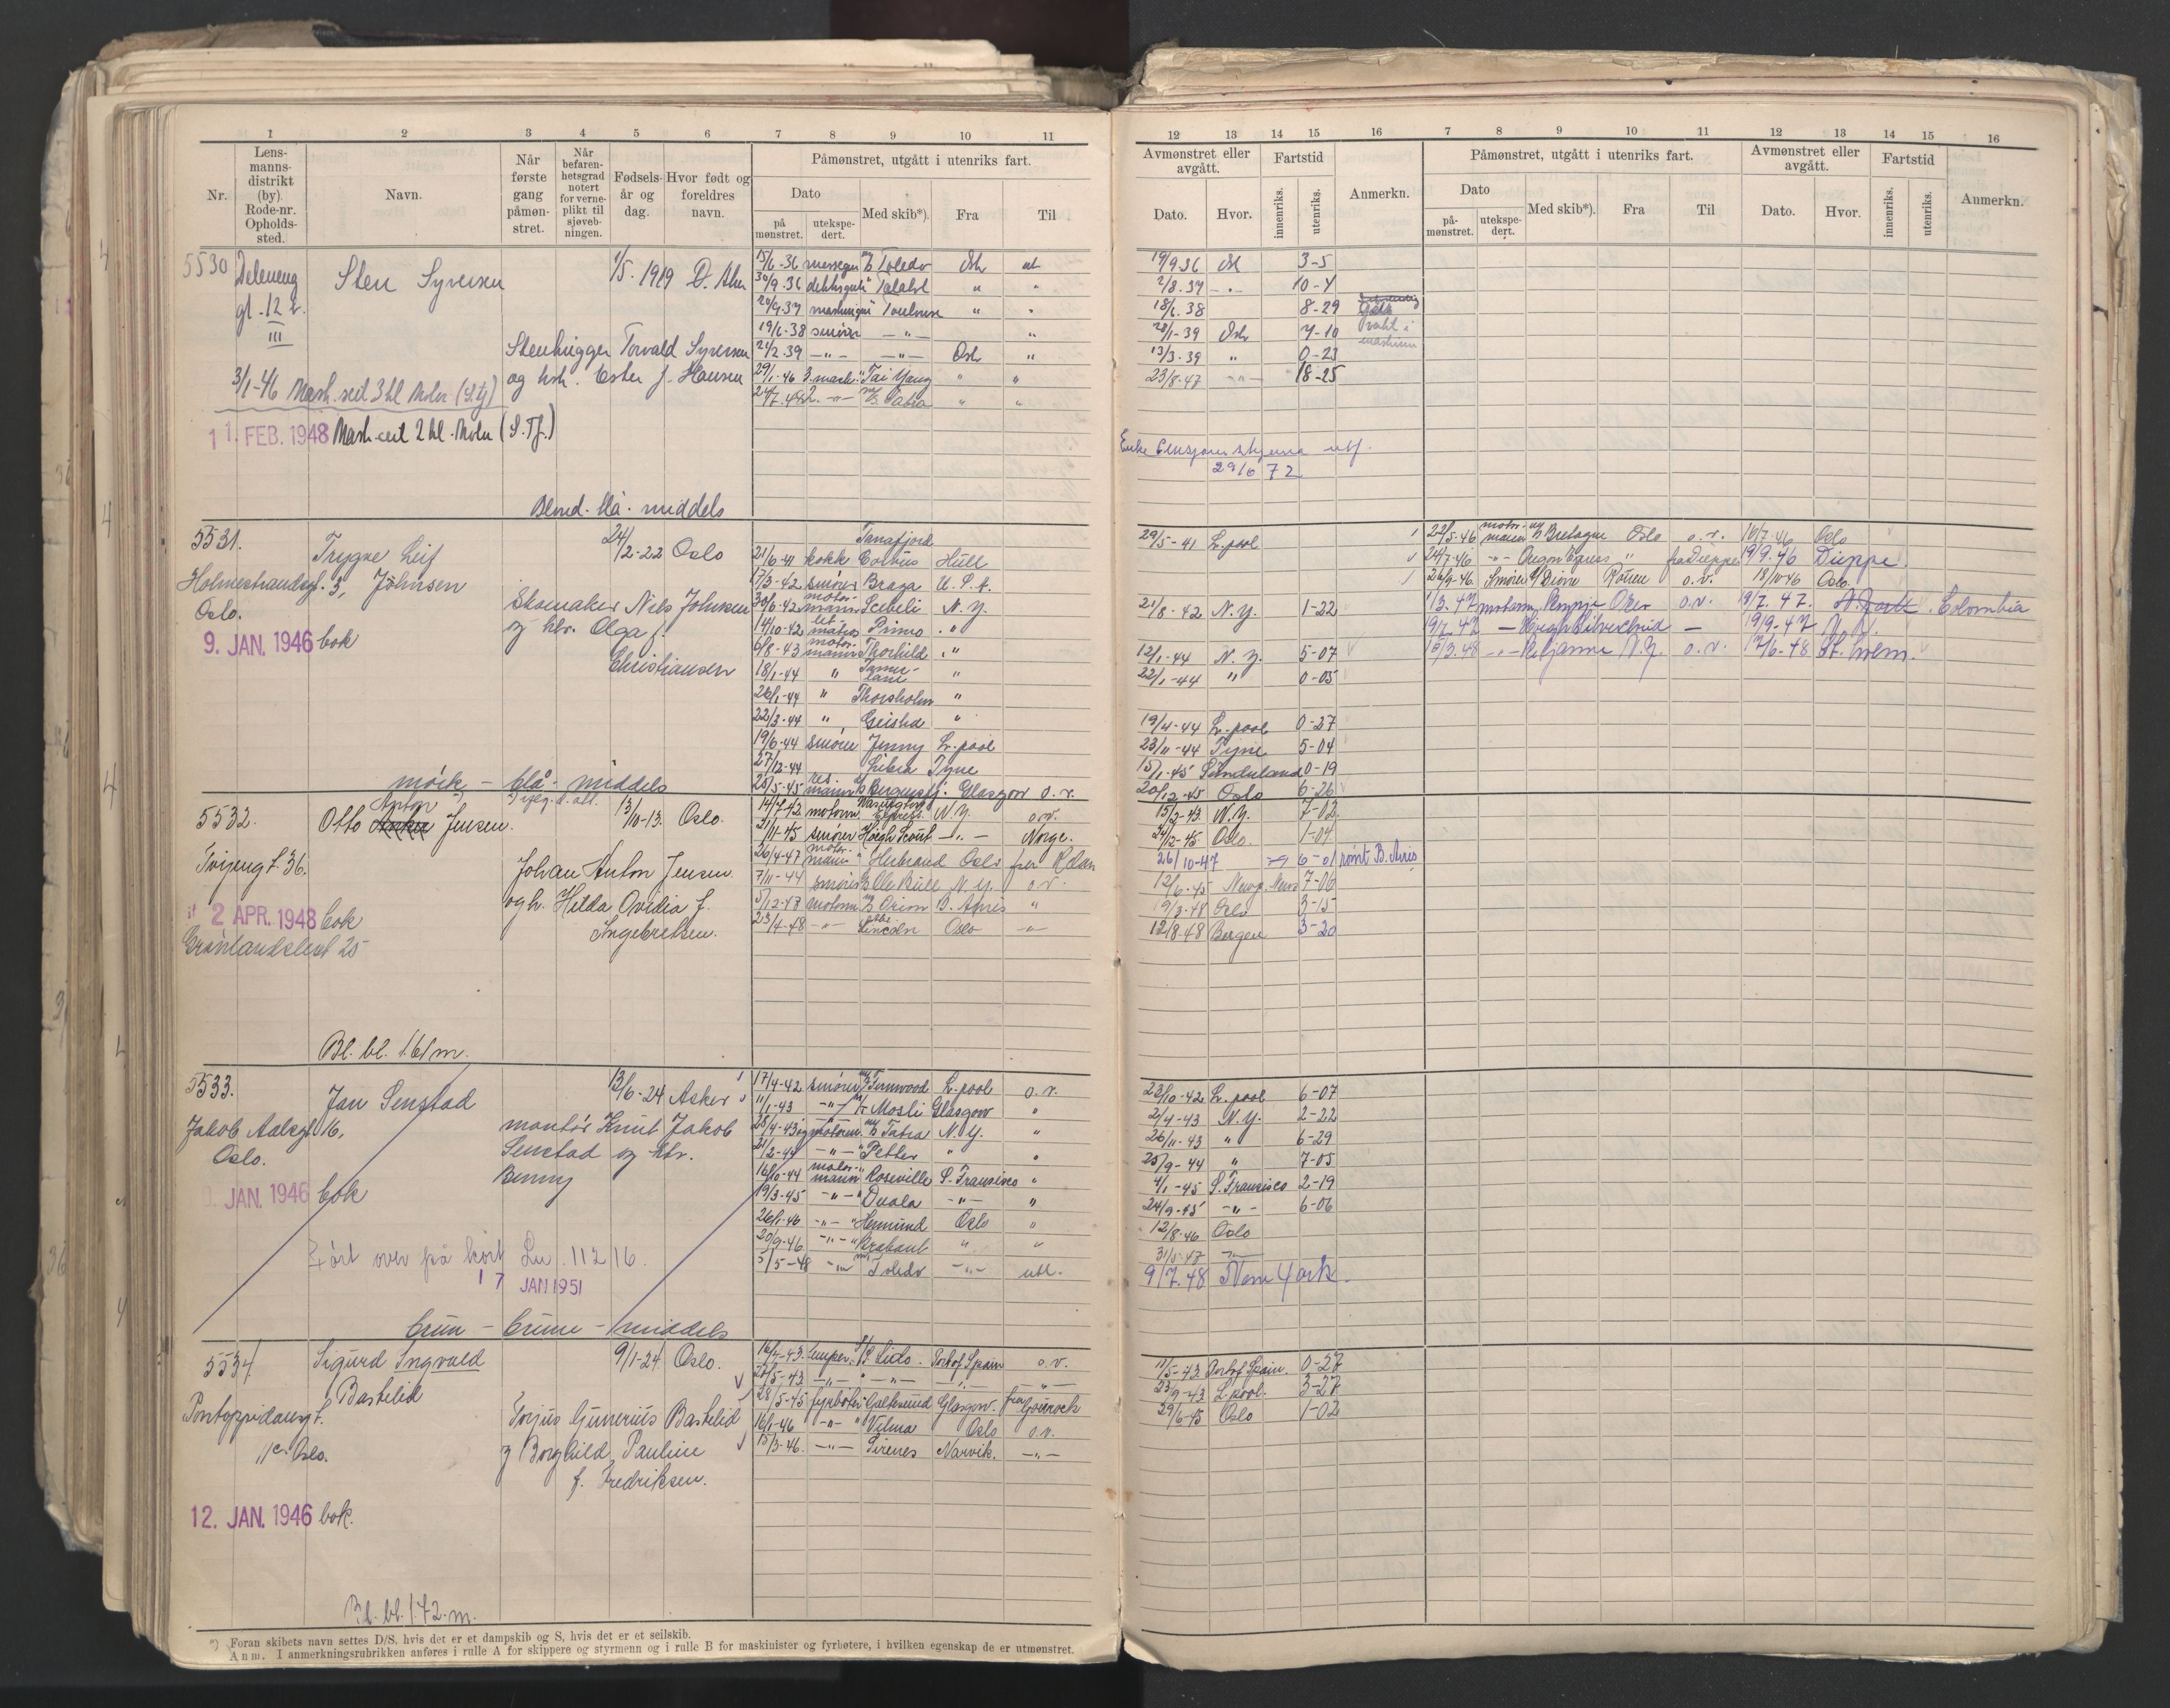 1 2 3 4 5 6 7 8 9 10 11
Nr.
Lens-
manns-
distrikt
(by).
Rode-nr.
Opholds-
sted.
Navn.
Når
første
gang
påmøn-
stret.
Når
befaren-
hetsgrad
notert
for verne-
plikt til
sjøveb-
ningen.
Fødsels-
år og
dag.
Hvor født og
foreldres
navn.
Påmønstret, utgått i utenriks fart.
Dato
på
mønstret.
utekspe-
dert.
Med skib*).
Fra
Til
5530
gt. 12
III
Sten Syversen
1/5. 1919 Ø. Aker
Stenhugger Torvald Syversen
og hst. Ester f. Hansen
3/1-46 Mask.seil 3 kl Motor (S.Tj)
11. FEB. 1948 Mask.seil 2 kl. Motor (S.Tj.)
Blond. blå. middels
15/6-36 Toledo
30/9-36
20/9-37 Toulouse " "
19/6-38 smører — " — "
21/2-39 — " — — " — Oslo "
29/1-46 3. mask. " Tai Yang " "
24/7.48 2. — " — M/S Tatra " "
5531.
Trygve Leif
Johnsen
Holmestrandsgt. 3,
Oslo.
9. JAN. 1946 bok
24/2-22 Oslo
Skomaker Nils Johnsen
og htr. Olga f.
Christiansen
mørk - blå - middels
Tanafjord
21/6-41 kokk Corbus Hull
17/3-42 smører Braga U.S.A.
30/6-42 motormann Leibeli N.Y.
14/10-42 let. matros Primo "
6/8-43 motormann Thorhild "
18/1-44 " Tamerlane "
26/1-44 " Thorsholm "
22/3-44 " Geisha "
19/6-44 smører Jenny L.pool
27/12-44 Libra Tyne
25/5-45 res. mann Bergensfj. Glasgow o.v.
5532.
Otto Anton Jensen.
1/3 10-13. Oslo.
Tvijengt. 36.
Johan Anton Jensen
og h. Hilda Ovidia f.
Ingebretsen.
2 APR. 1948 bok
Grønlandsleret 25
Bl. bl. 1.61 m.
14/7.42 motorm. Washington Express. N.Y. o.v.
21/11-45 smører Høegh Scout — " — Norge.
26/4-47 motormann " Herbrand Oslo
7/11-44 smører Ole Bull N.Y. o.v.
5/12-47 motorm. M/S Orion B. Aires "
23/4-48 — " — Abr. Lincoln Oslo — " —
5533.
Jan Senstad
Jakob Aalsgt. 16,
Oslo.
13/6-24 Asker
montør Knut Jakob
Senstad og htr.
Benny
JAN. 1946 bok
Ført over på kort Lu. 11216.
17 JAN 1951
brun - brune - middels
17/4-42 smører M/S Fernwood L.pool o.v.
11/1-43 — " — M/T Mosli Glasgow "
28/4-43 motorm. M/S Tatra N.Y. "
21/2-44 — " — " Petter " "
16/10-44 motormann " Roseville S. Francisco "
19/3-45 — " — " Duala — " — "
26/1-46 — " — " Hermund Oslo "
20/9-46 — " — " Brabant " "
5/5-48 — " — M/S Toledo — " — utl.
5534.
Sigurd Ingvald
Bastelid
9/1-24 Oslo.
Pontoppidansgt.
11c. Oslo.
Torjus Gunerius Bastelid
og Borghild Pauline
f. Fredriksen.
12. JAN. 1946 bok.
Bl. bl. 1.72 m.
16/4-43. lemper. D/S Lido. Port of Spain o.v.
22/5-43 — " — " — " — — " — — " —
28/5-45 fyrbøter " Galtesund Glasgow. fra Gourock
16/1-46 — " — " Vilma Oslo o.v.
15/3-46. — " — Sirenes Narvik. — " —
*) Foran skibets navn settes D/S, hvis det er et dampskib og S, hvis det er et seilskib.
Anm. I anmerkningsrubrikken anføres i rulle A for skippere og styrmenn og i rulle B for maskinister og fyrbøtere, i hvilken egenskap de er utmønstret.
12 13 14 15 16 7 8 9 10 11 12 13 14 15 16
Avmønstret eller
avgått.
Fartstid
Dato.
Hvor.
innenriks.
utenriks.
Anmerkn.
Påmønstret, utgått i utenriks fart.
Dato
på-
mønstret.
utekspe-
dert.
Med skib*).
Fra
Til
Avmønstret eller
avgått.
Dato.
Hvor.
Fartstid
innenriks.
utenriks.
Anmerkn.
19/9 36 Osl 3-5
2/8. 37 — " — 10-4
18/6. 38 8-29
vakt i
maskinen
28/1-39 Oslo 7-10
13/3-39 " 0-23
23/8-47 — " — 18-25
29/6 72
29/5-41 L.pool
21/8-42 N.Y. 1-22
12/1-44 N.Y. 5-07
22/1-44 " 0-05
19/4-44 L.pool 0-27
23/11-44 Tyne 5-04
15/1-45 Sunderland 0-19
20/12-45 Oslo 6-26
22/5-46 motormann M/S Bretagne Oslo o.v. 16/7-46 Oslo
24/7-46 — " — Oregon Express " fra Dieppe 19/9-46 Dieppe.
26/9-46 Smører Rouen o.v. 18/10 46 Oslo.
1/3.47 motorm. Oslo o.v. 19/7. 47. N. York. Colombia
19/7 47 — Høegh Silvercloud — 19/9-47 N.Y.
10/3.48 — " — N.Y. o.v. 12/6-48 St. hvem.
15/2-43. N.Y. 7-02
24/12-45 Oslo. 1-04
26/10-47 6-01 rømt B. Aires
12/6-45 Newp. News 7-06
19/3-48 Oslo 3-15
12/8.48 Bergen 3-20
23/10-42 L.pool 6-07
2/4-43 N.Y. 2-22
26/11-43 " 6-29
25/9-44 " 7-05
4/1-45 S. Francisco 2-19
24/9-45 — " — 6-06
12/8-46 Oslo
31/5-47 — " —
9/7.48 New York.
11/5-43 Port of Spain. 0-27
23/9-43 L.pool. 3-27
29/6-45 Oslo 1-02